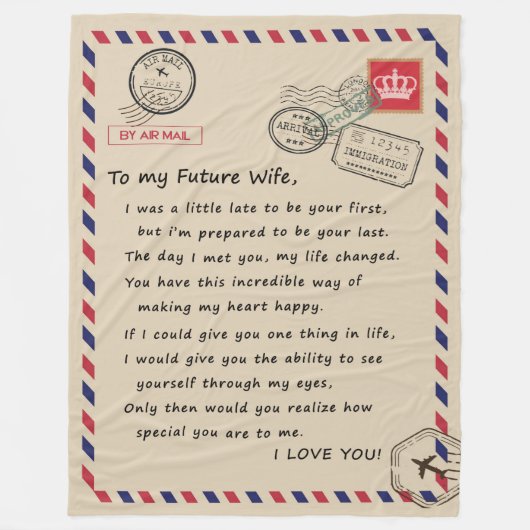 AIR MAIL
EUROPE
12345
LONDON
APPROVED
BY AIR MAIL
ARRIVAL
12345
IMMIGRATION
To my Future Wife,
I was a little late to be your first,
but i'm prepared to be your last.
The day I met you, my life changed.
You have this incredible way of
making my heart happy.
If I could give you one thing in life,
I would give you the ability to see
yourself through my eyes,
Only then would you realize how
special you are to me.
I LOVE YOU!